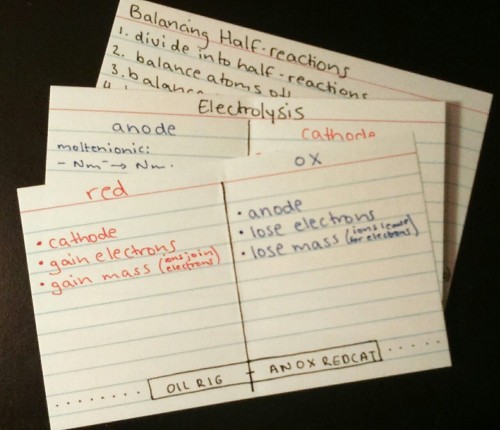 Balancing Half-reactions
1. divide into half-reactions
2. balance atoms
3. balance
4.
Electrolysis
anode
molten ionic:
- Nm⁻ → Nm.
cathode
red
• cathode
• gain electrons
• gain mass (ions join electrons)
ox
• anode
• lose electrons
• lose mass (ions leave for electrons)
OIL RIG
AN OX RED CAT